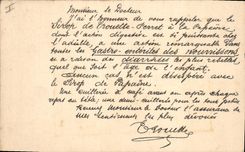 Monsieur le Docteur
J'ai l'honneur de vous rappeler que le
Sirop de Trouette-Perret à la Papaïne
dont l'action digestive est si puissante chez
l'adulte, a une action remarquable dans
toutes les Gastro-entérites des nourrissons
et a raison des diarrhées les plus rebelles
quel que soit l'âge de l'enfant.
Aucun cas n'est dyspepsie avec
le Sirop de Papaïne
Une cuillerée à café avant ou après chaque
repas ou tétée; une demi-cuillerée pour les tout petits
Veuillez Monsieur le Docteur l'assurance de
mes sentiments les plus dévoués
Trouette